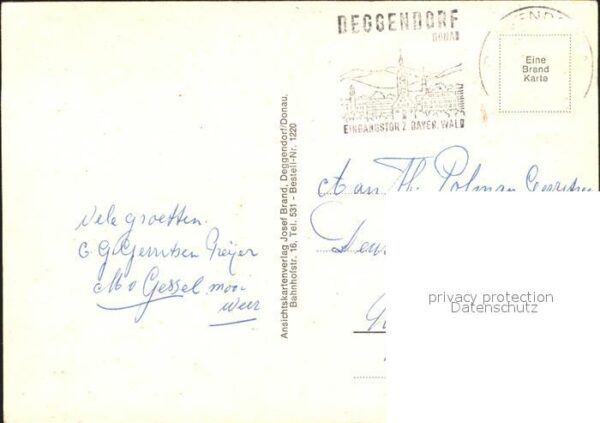 DEGGENDORF
DONAU
EINGANGSTOR Z. BAYER. WALD
Eine
Brand
Karte
Ansichtskartenverlag Josef Brand, Deggendorf/Donau,
Bahnhofstr. 16, Tel. 531 - Bestell-Nr. 1220
Vele groetten.
G. G Gerritsen
M v Gessel mooi
weer
Aan Th. Polman
privacy protection
Datenschutz